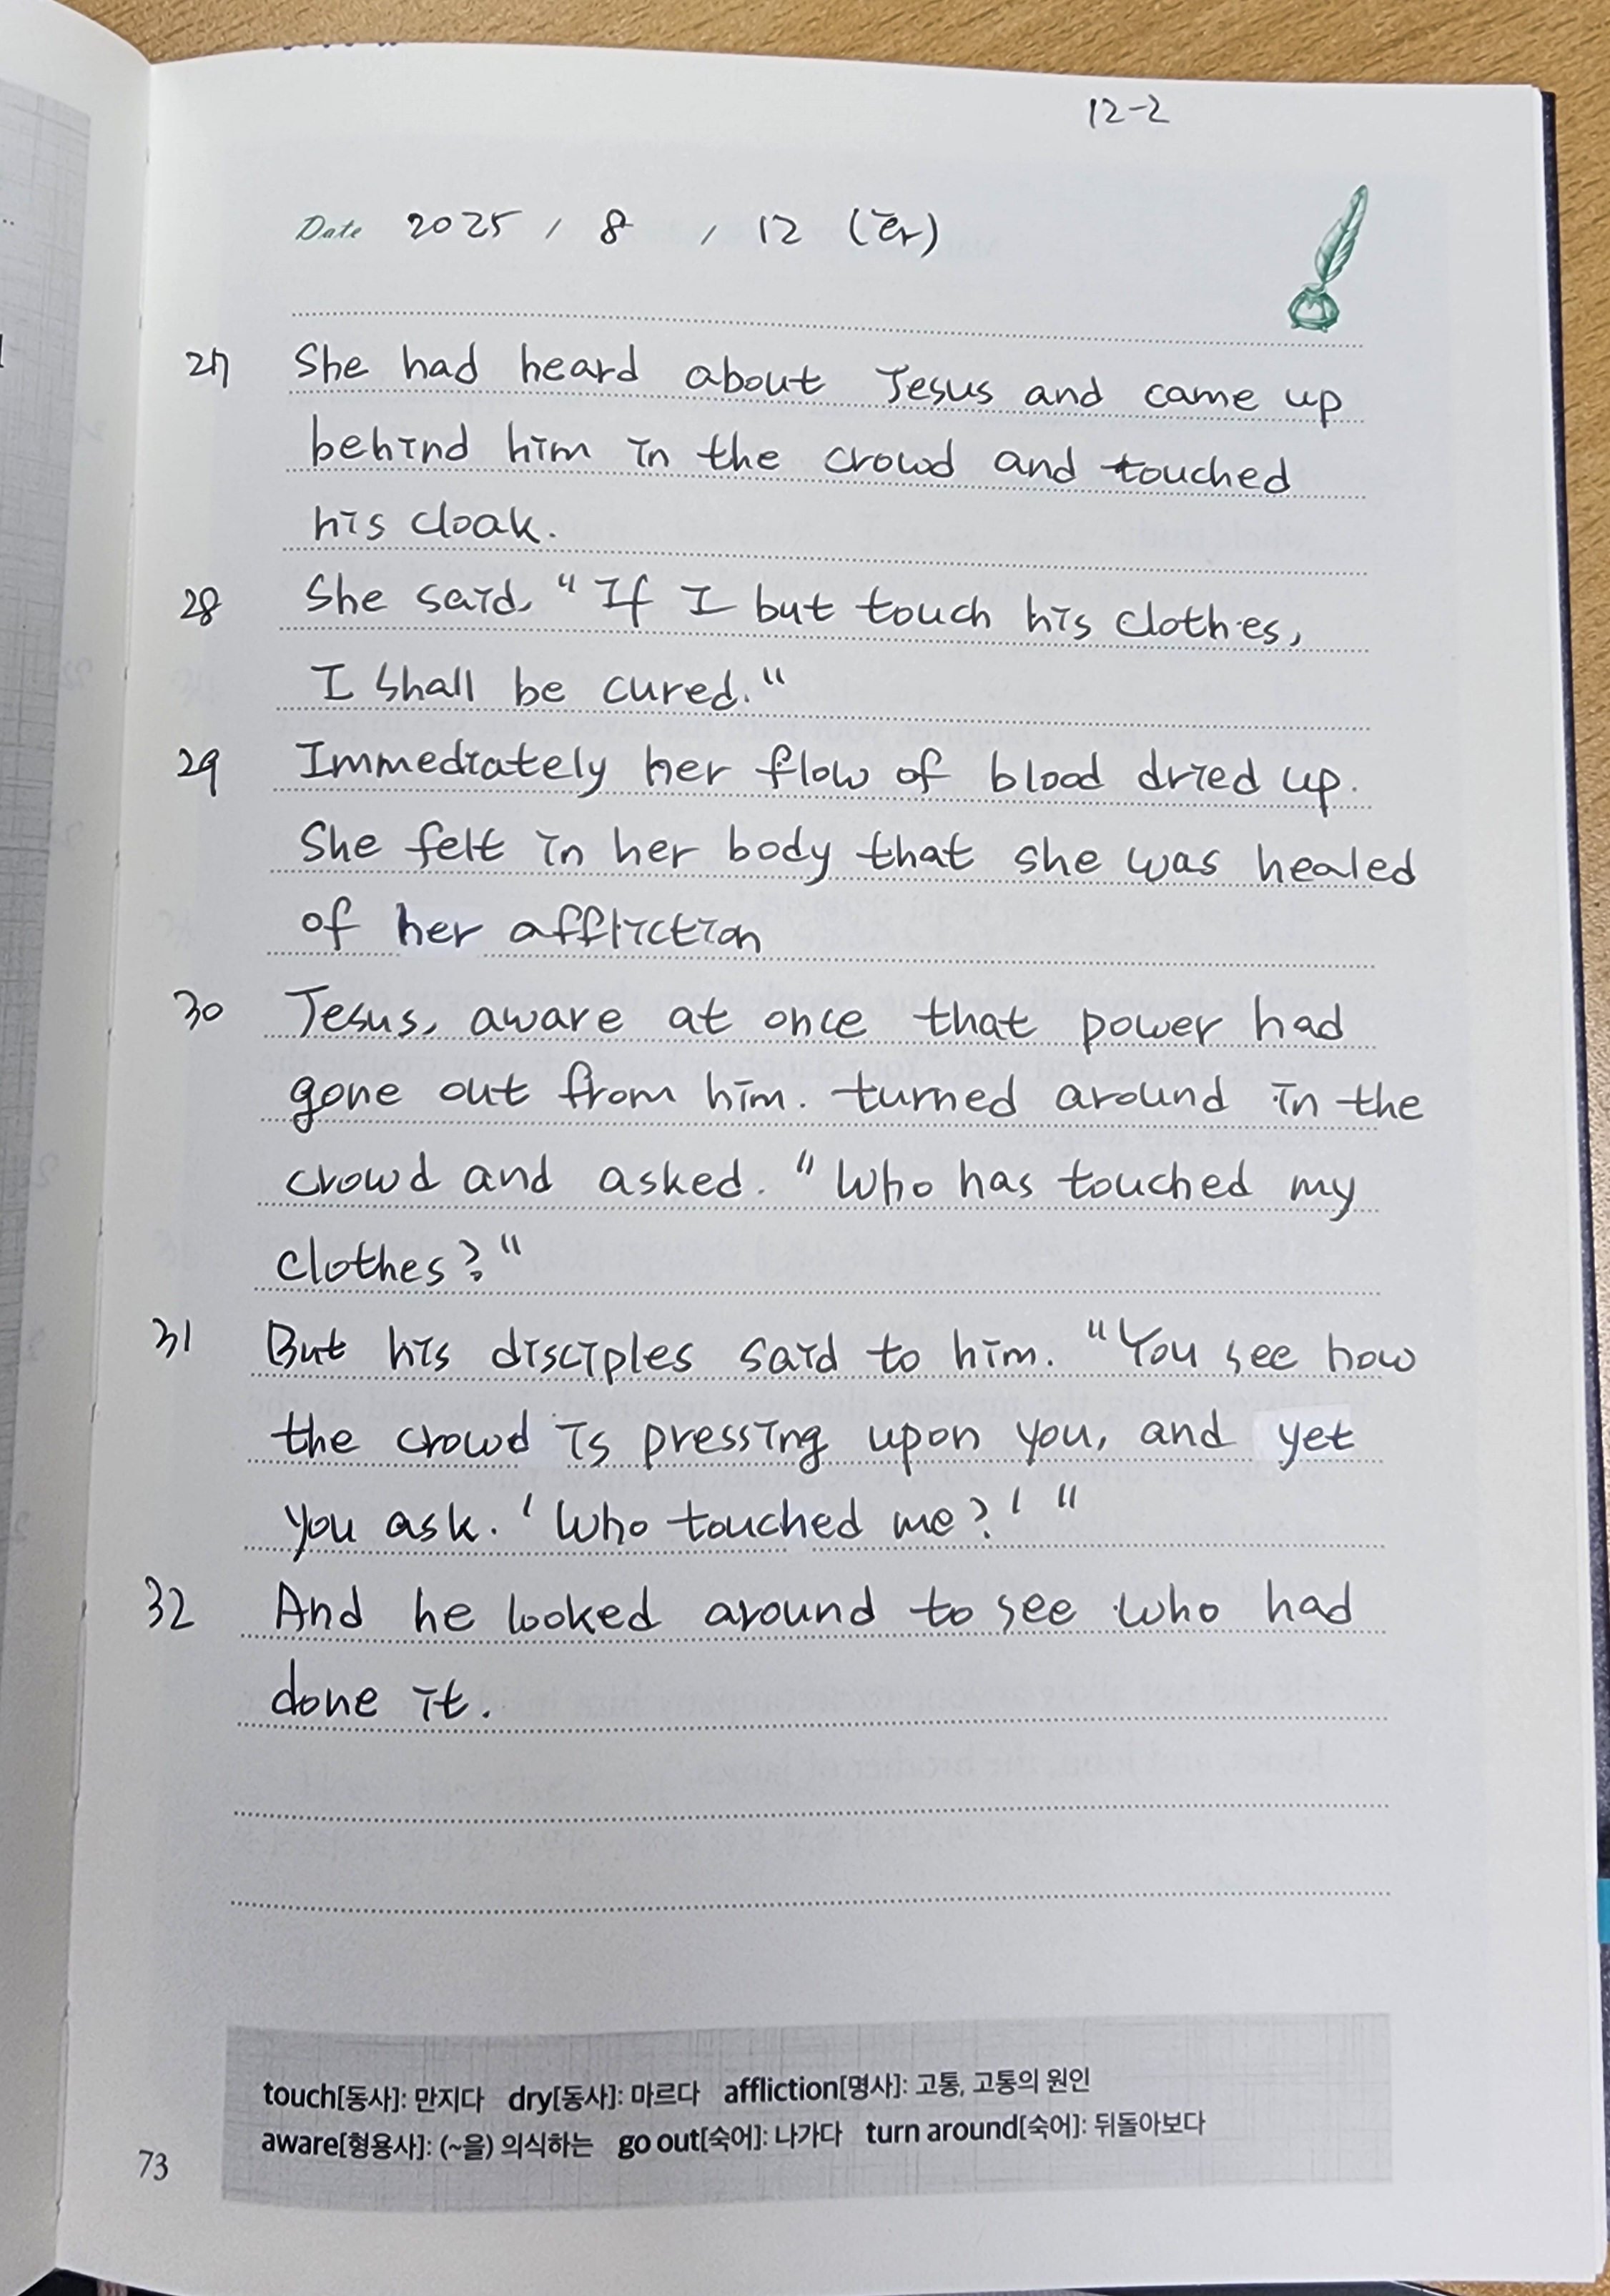 12-2
Date 2025 / 8 / 12 (화)
27 She had heard about Jesus and came up
behind him in the crowd and touched
his cloak.
28 She said, "If I but touch his clothes,
I shall be cured."
29 Immediately her flow of blood dried up.
She felt in her body that she was healed
of her affliction
30 Jesus, aware at once that power had
gone out from him. turned around in the
crowd and asked. "Who has touched my
clothes?"
31 But his disciples said to him. "You see how
the crowd is pressing upon you, and yet
you ask. 'Who touched me?' "
32 And he looked around to see who had
done it.
touch[동사]: 만지다 dry[동사]: 마르다 affliction[명사]: 고통, 고통의 원인
aware[형용사]: (~을) 의식하는 go out[숙어]: 나가다 turn around[숙어]: 뒤돌아보다
73